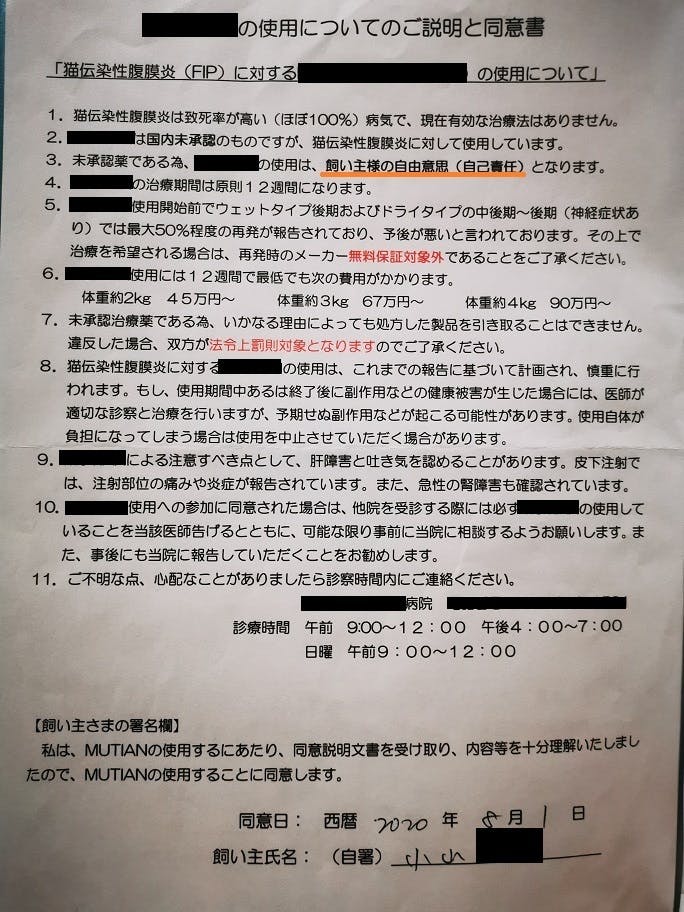 の使用についてのご説明と同意書
「猫伝染性腹膜炎（FIP）に対する の使用について」
1．猫伝染性腹膜炎は致死率が高い（ほぼ100％）病気で、現在有効な治療法はありません。
2． は国内未承認のものですが、猫伝染性腹膜炎に対して使用しています。
3．未承認薬である為、 の使用は、飼い主様の自由意思（自己責任）となります。
4． の治療期間は原則12週間になります。
5． 使用開始前でウェットタイプ後期およびドライタイプの中後期～後期（神経症状あ
り）では最大50％程度の再発が報告されており、予後が悪いと言われております。その上で
治療を希望される場合は、再発時のメーカー無料保証対象外であることをご了承ください。
6． 使用には12週間で最低でも次の費用がかかります。
体重約2kg 45万円～ 体重約3kg 67万円～ 体重約4kg 90万円～
7．未承認治療薬である為、いかなる理由によっても処方した製品を引き取ることはできません。
違反した場合、双方が法令上罰則対象となりますのでご了承ください。
8．猫伝染性腹膜炎に対する の使用は、これまでの報告に基づいて計画され、慎重に行
われます。もし、使用期間中あるは終了後に副作用などの健康被害が生じた場合には、医師が
適切な診察と治療を行いますが、予期せぬ副作用などが起こる可能性があります。使用自体が
負担になってしまう場合は使用を中止させていただく場合があります。
9． による注意すべき点として、肝障害と吐き気を認めることがあります。皮下注射で
は、注射部位の痛みや炎症が報告されています。また、急性の腎障害も確認されています。
10． 使用への参加に同意された場合は、他院を受診する際には必ず の使用して
いることを当該医師告げるとともに、可能な限り事前に当院に相談するようお願いします。ま
た、事後にも当院に報告していただくことをお勧めします。
11．ご不明な点、心配なことがありましたら診察時間内にご連絡ください。
病院
診療時間 午前 9:00～12：00 午後4：00～7：00
日曜 午前9：00～12：00
【飼い主さまの署名欄】
私は、MUTIANの使用するにあたり、同意説明文書を受け取り、内容等を十分理解いたしまし
たので、MUTIANの使用することに同意します。
同意日： 西暦 2020 年 8 月 1 日
飼い主氏名：（自署）